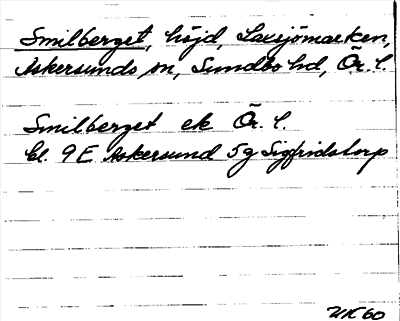 Smilberget, höjd, Laxsjömarken,
Askersunds sn, Sundbo hd, Ör. l.
Smilberget ek Ör. l.
bl. 9E Askersund 5g Sigfridstorp
UK 60